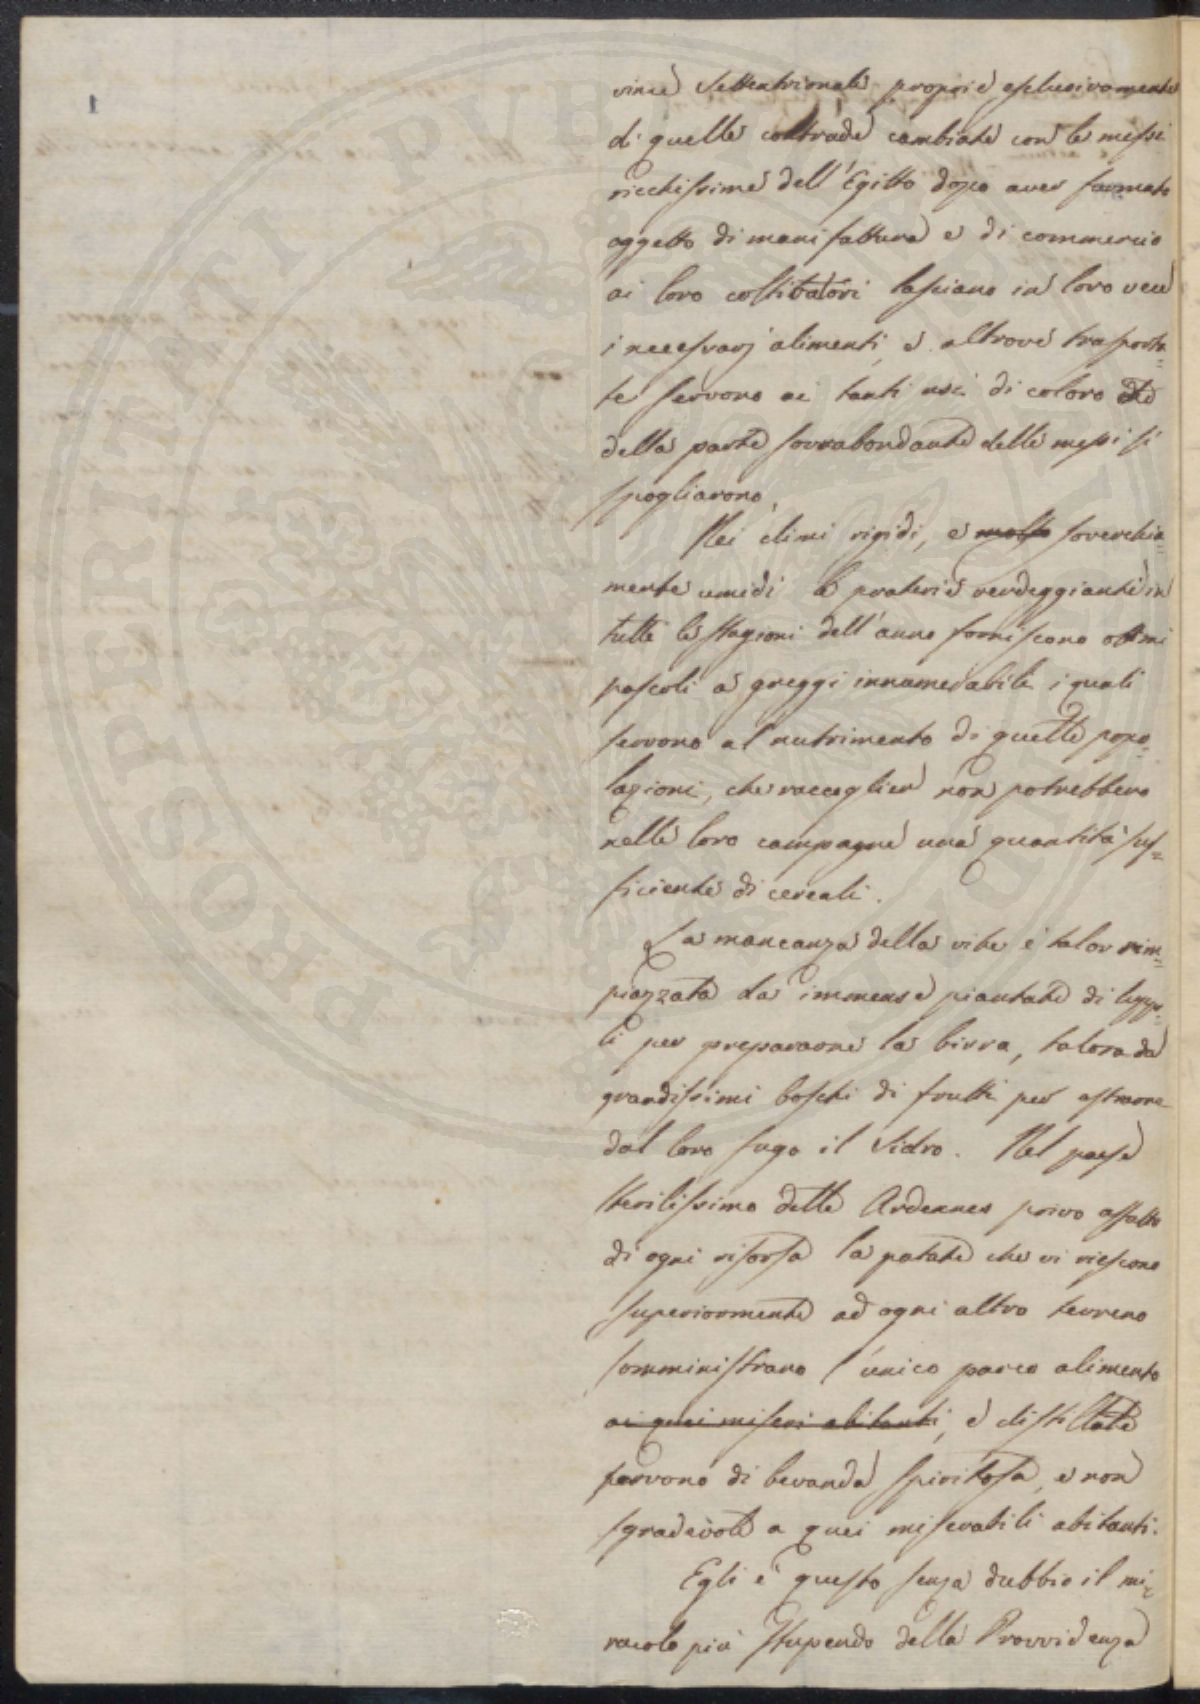 vincie Settentrionali proprie esclusivamente
di quelle contrade cambiate con le messi
ricchissime dell'Egitto dopo aver formato
oggetto di manifattura e di commercio
ai loro coltivatori lasciano in loro vece
i necessarj alimenti, e altrove trasporta=
te servono ai tanti usi di coloro che
della parte sovrabbondante delle messi si
spogliarono.
Nei climi rigidi, e molto soverchia=
mente umidi le praterie verdeggianti in
tutte le stagioni dell'anno forniscono ottimi
pascoli a greggi innumerabili i quali
servono al nutrimento di quelle popo=
lazioni, che raccoglier non potrebbero
nelle loro campagne una quantità suf=
ficiente di cereali.
La mancanza della vite è talor rim=
piazzata da immense piantate di luppo=
li per prepararne la birra, talora da
grandissimi boschi di frutti per estrarre
dal loro sugo il Sidro. Nel paese
sterilissimo delle Ardennes privo affatto
di ogni risorsa le patate che vi riescono
superiormente ad ogni altro terreno
somministrano l'unico parco alimento
ai quei miseri abitanti, e distillate
servono di bevanda spiritosa, e non
sgradevole a quei miserabili abitanti.
Egli è questo senza dubbio il mi=
racolo più stupendo della Provvidenza
PROSPERITATI PVBLICAE